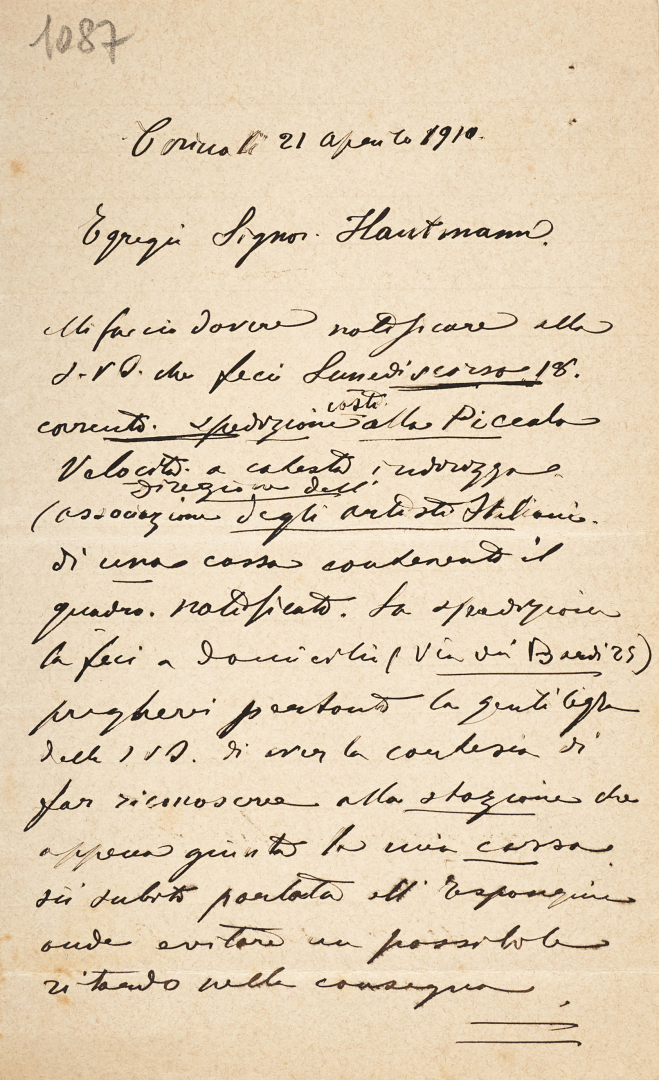 1087
Torino li 21 Aprile 1910.
Egregio Signor Hautmann.
Mi faccio dovere notificare alla
S.V.I. che feci Lunedì scorso 18.
corrente. spedizione costì alla Piccola
Velocità a codesto indirizzo
Direzione dell'
(associazione degli artisti Italiani.
di una cassa contenente il
quadro. notificato. La spedizione
la feci a domicilio (Via dei Bardi 25)
pregherei pertanto la gentilezza
della S.V.I. di aver la cortesia di
far riconoscere alla stazione che
appena giunta la mia cassa
sii subito portata all' Esposizione
onde evitare un possibile
ritardo nella consegna